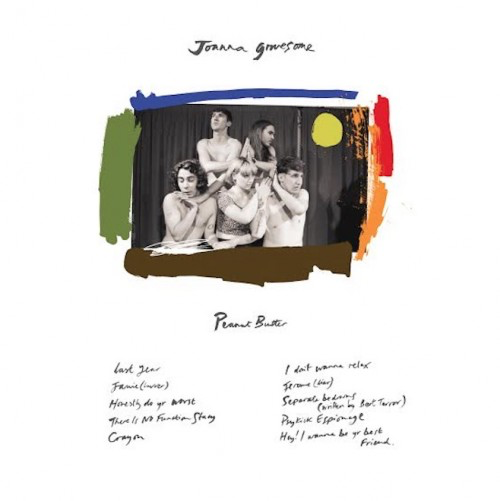 Joanna gruesome
Peanut Butter
Last year
Jamie (luvver)
Honestly do yr worst
There Is No Function Stacy
Crayon
I don't wanna relax
Jerome (liar)
Separate bedrooms
(written by Bert Terror)
Psykick Espionage
Hey! I wanna be yr best
Friend.